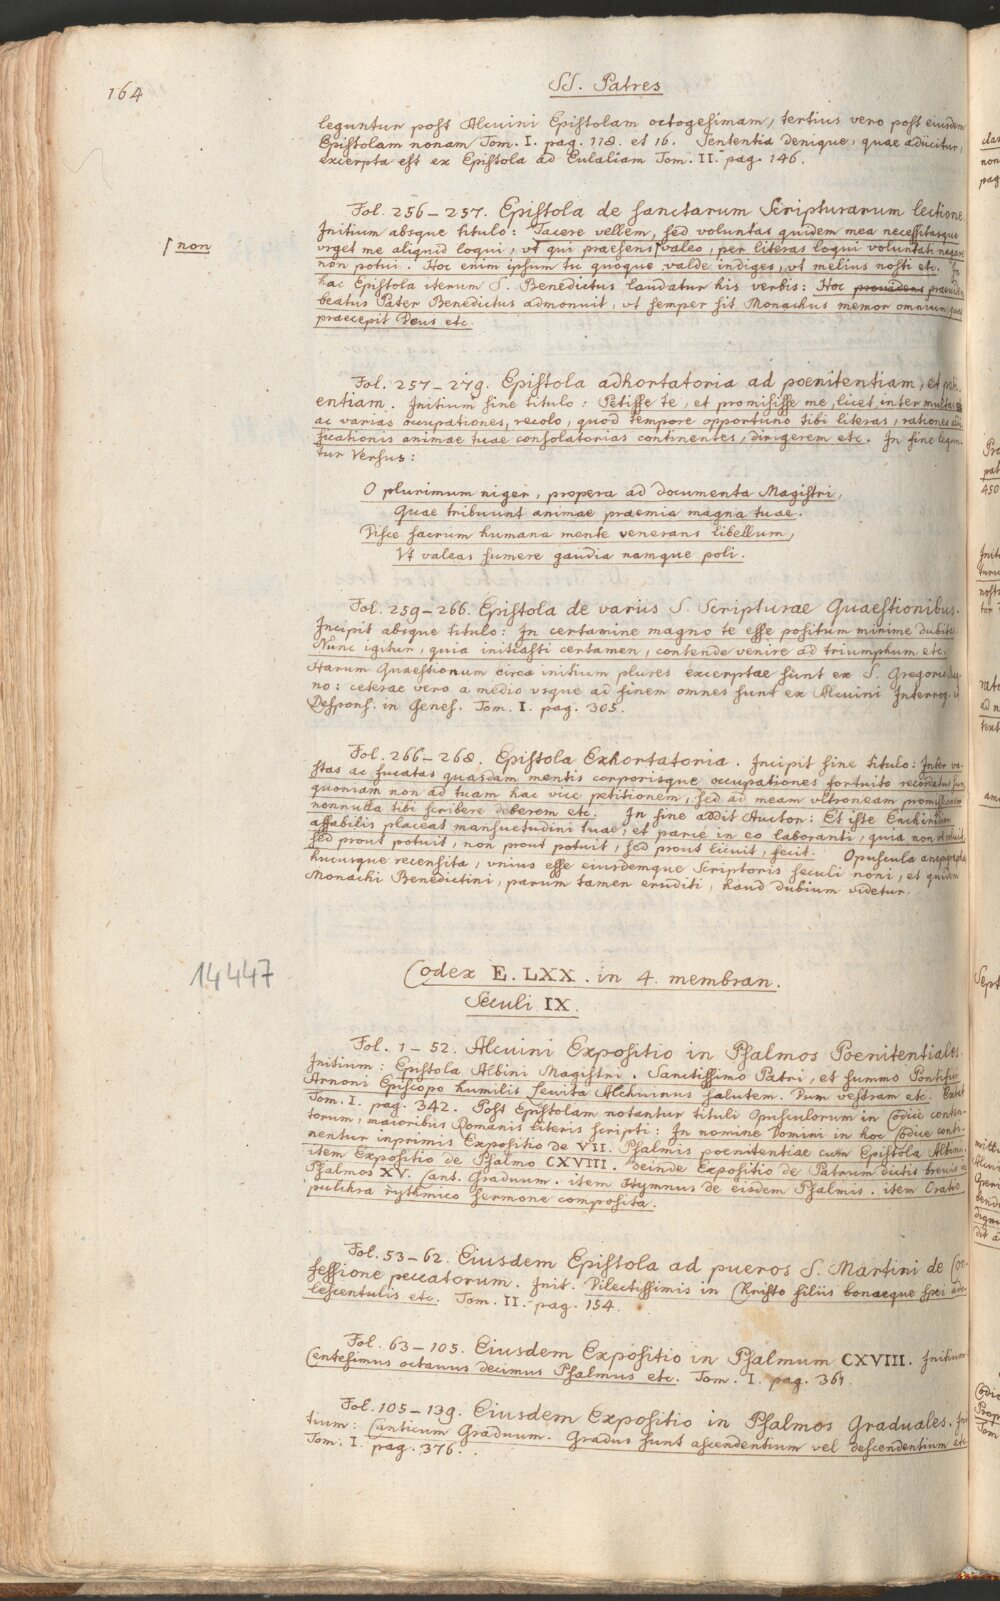 164
SS. Patres
leguntur post Alcuini Epistolam octogesimam, tertius vero post eiusdem
Epistolam nonam Tom. I. pag. 118. et 16. Sententia denique, quae adiicitur,
excerpta est ex Epistola ad Eulaliam Tom. II. pag. 146.
Fol. 256–257. Epistola de sanctarum Scripturarum lectione.
Initium absque titulo: Tacere vellem, sed voluntas quidem mea necessitasque
⌈ non
vrget me aliquid loqui, vt qui praesens ⌈ valeo, per literas loqui voluntati negare
non potui. Hoc enim ipsum tu quoque valde indiges, vt melius nosti etc. In
hac Epistola iterum S. Benedictus laudatur his verbis: Hoc providens
beatus Pater Benedictus admonuit, vt semper sit Monachus memor omnium, quae
praecepit Deus etc.
Fol. 257–279. Epistola adhortatoria ad poenitentiam, et pati-
entiam. Initium sine titulo: Petiisse te, et promisisse me, licet inter multas
ac varias occupationes, recolo, quod tempore opportuno tibi literas, rationes
ficationis animae tuae consolatorias continentes, dirigerem etc. In fine legun-
tur Versus:
O plurimum niger, propera ad documenta Magistri,
Quae tribuunt animae praemia magna tuae.
Disce sacrum humana mente venerans libellum,
Vt valeas sumere gaudia namque poli.
Fol. 259–266. Epistola de variis S. Scripturae Quaestionibus.
Incipit absque titulo: In certamine magno te esse positum minime dubites.
Nunc igitur, quia initiasti certamen, contende venire ad triumphum etc.
Harum Quaestionum circa initium plures excerptae sunt ex S. Gregorio Mag-
no: ceterae vero a medio vsque ad finem omnes sunt ex Alcuini Interrog. et
Respons. in Genes. Tom. I. pag. 305.
Fol. 266–268. Epistola Exhortatoria. Incipit sine titulo: Inter va-
stas ac fucatas quasdam mentis corporisque occupationes fortuito recordatus sum,
quoniam non ad tuam hac vice petitionem, sed ad meam vltroneam promissionem
nonnulla tibi scribere deberem etc. In fine addit Auctor: Et iste Enchiridion
affabilis placeat mansuetudini tuae, et parce in eo laboranti, quia non vt voluit,
sed prout potuit, non prout potuit, sed prout licuit, fecit. Opuscula anepigrapha
hucusque recensita, vnius esse eiusdemque Scriptoris seculi noni, et quidem
Monachi Benedictini, parum tamen eruditi, haud dubium videtur.
14447
Codex E. LXX. in 4. membran.
Seculi IX.
Fol. 1–52. Alcuini Expositio in Psalmos Poenitentiales.
Initium: Epistola Albini Magistri. Sanctissimo Patri, et summo Pontifici
Arnoni Episcopo humilis Levita Alchuinus salutem. Dum vestram etc. Extat
Tom. I. pag. 342. Post Epistolam notantur tituli Opusculorum in Codice conten-
torum, maioribus Romanis literis scripti: In nomine Domini in hoc Codice conti-
nentur inprimis Expositio de VII. Psalmis poenitentiae cum Epistola Albini.
item Expositio de Psalmo CXVIII. deinde Expositio de Patrum dictis brevis in
Psalmos XV. Cant. Graduum. item Hymnus de eisdem Psalmis. item Oratio
pulchra rythmico sermone composita.
Fol. 53–62. Eiusdem Epistola ad pueros S. Martini de Con-
fessione peccatorum. Init. Dilectissimis in Christo filiis bonaeque spei ado-
lescentulis etc. Tom. II. pag. 154.
Fol. 63–105. Eiusdem Expositio in Psalmum CXVIII. Initium
Centesimus octavus decimus Psalmus etc. Tom. I. pag. 361.
Fol. 105–139. Eiusdem Expositio in Psalmos Graduales. Ini-
tium: Canticum Graduum. Gradus sunt ascendentium vel descendentium etc
Tom. I. pag. 376.